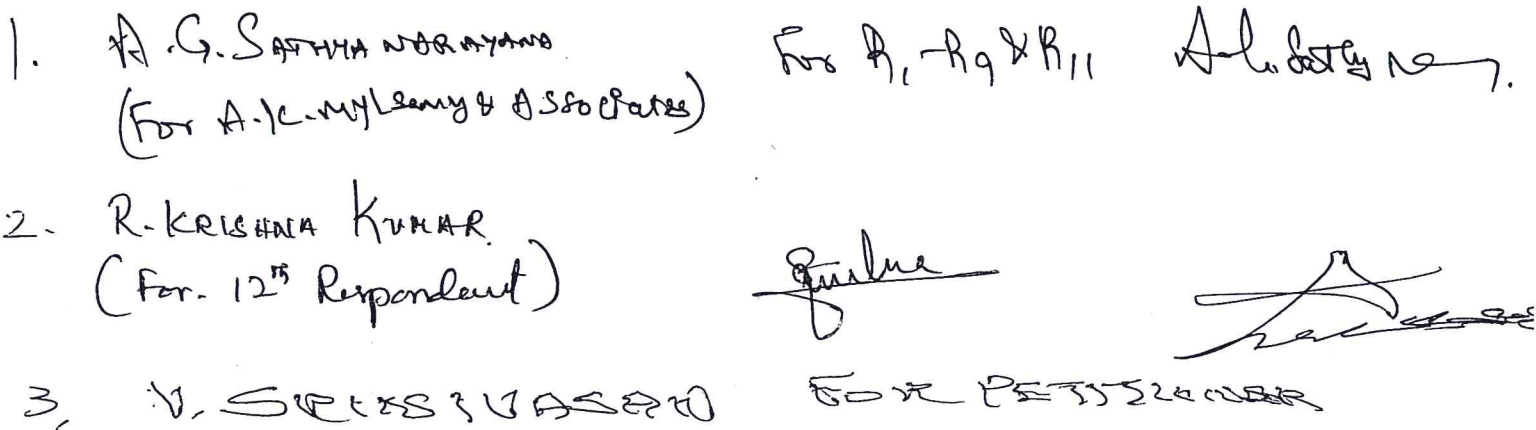 1. A.G. SATHYA NARAYANA For R1-R9 & R11
(For A.K. Mylsamy & Associates)
2. R. KRISHNA KUMAR
(For. 12th Respondent)
3, V. SRINIVASAN FOR PETITIONER